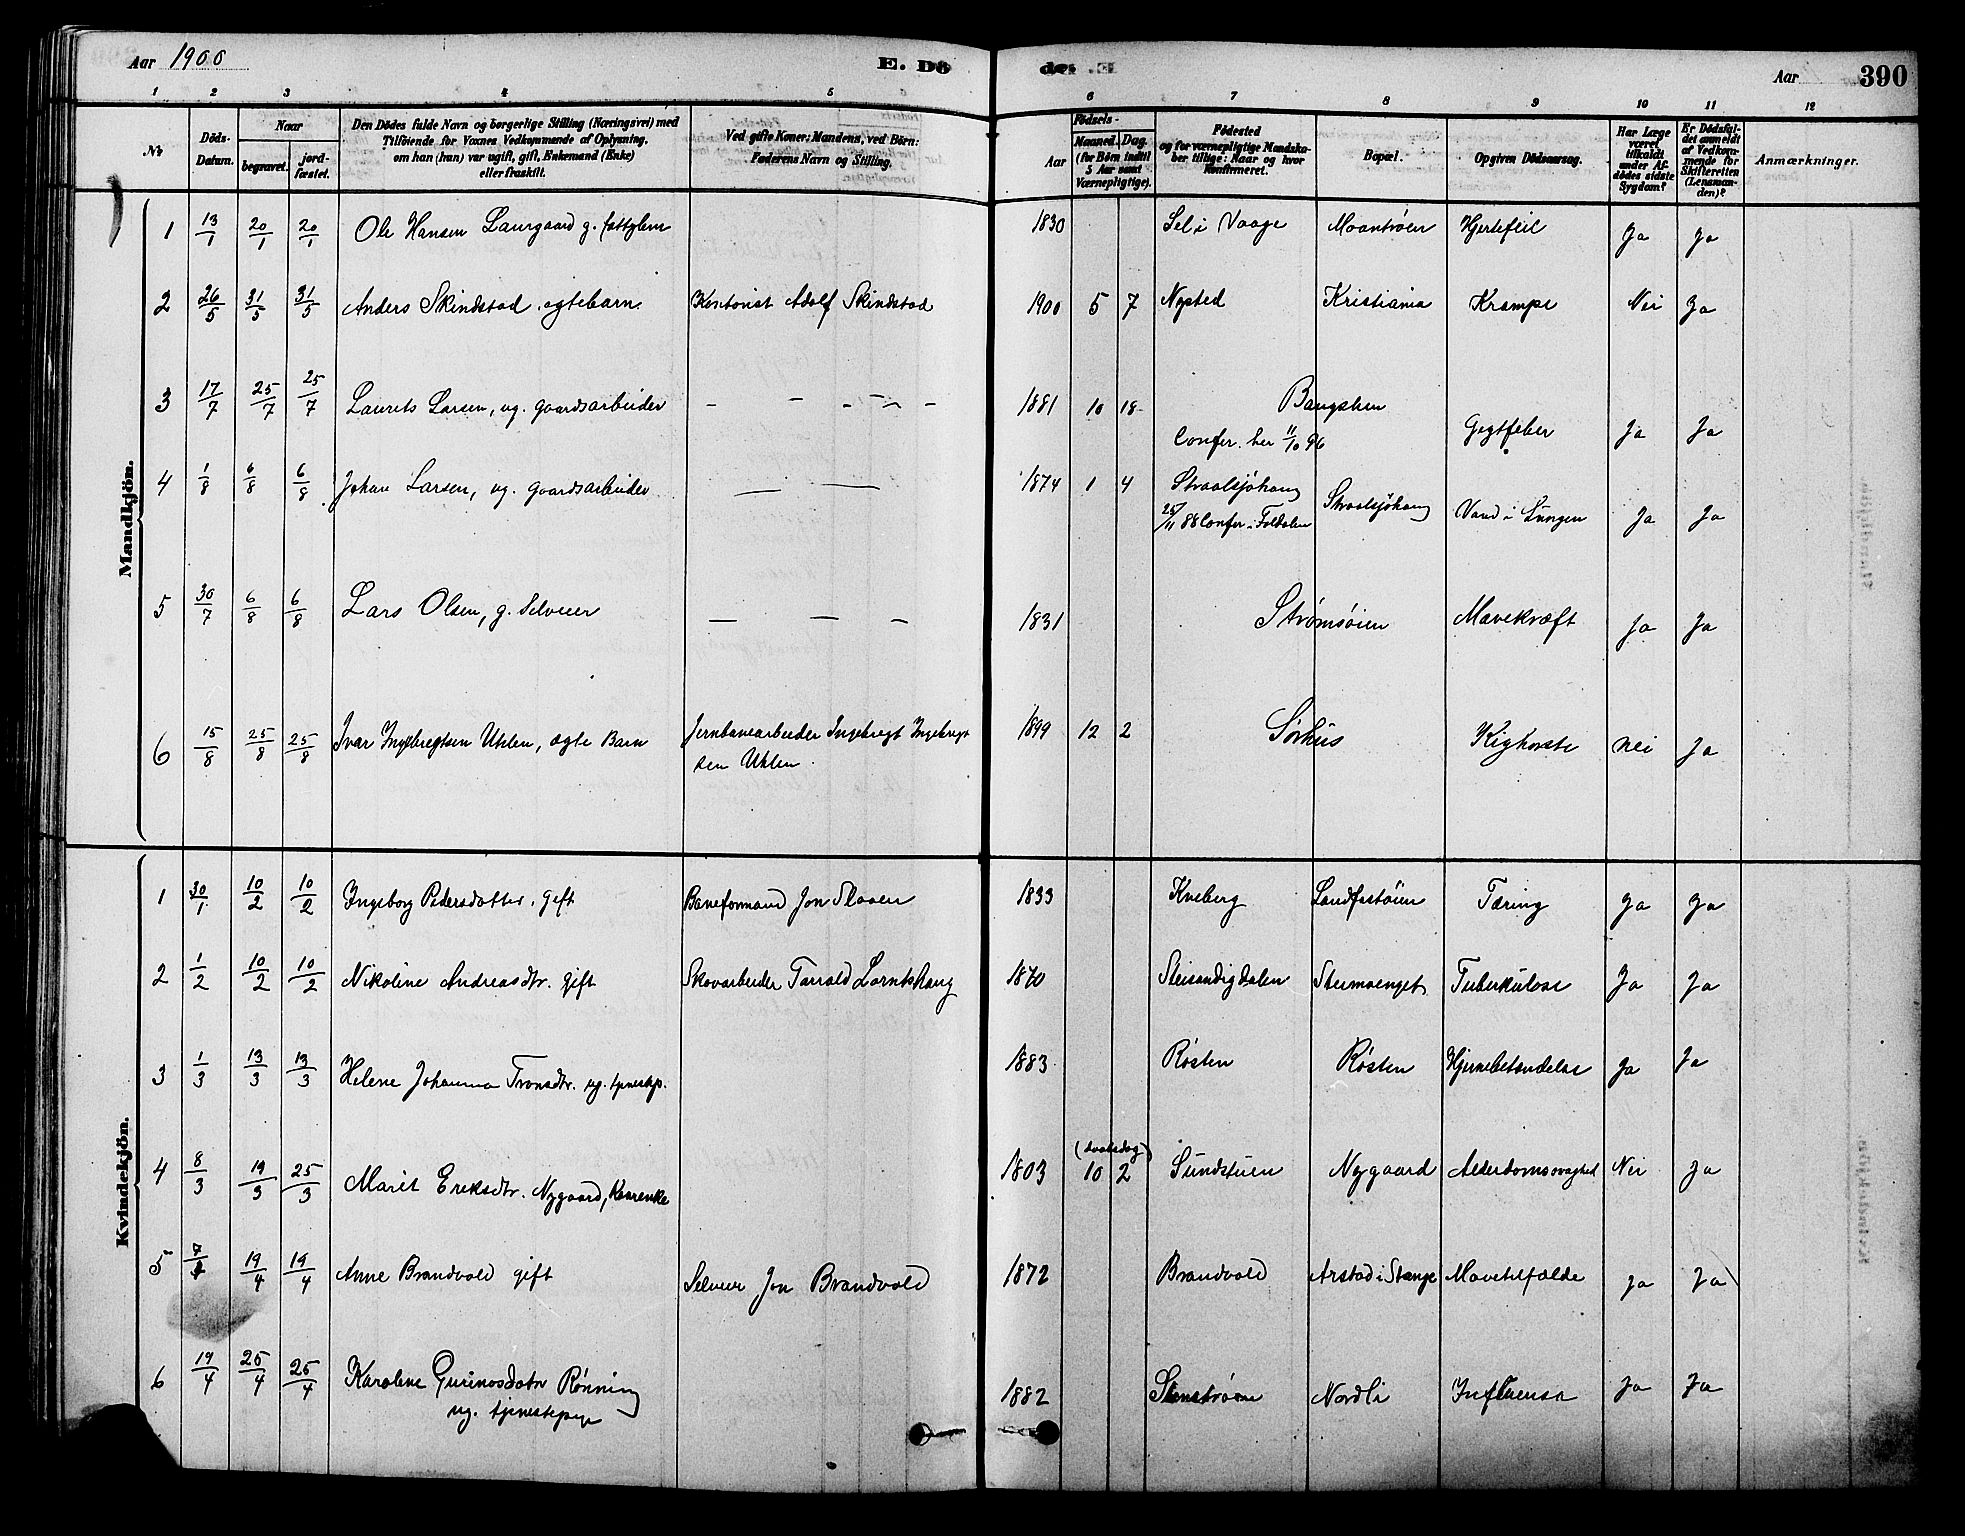 Aar 1900 E. Dö
de. Aar 390
1 2 3 4 5
6 7 8 9 10 11 12
No
Döds-Datum.
Naar
begravet. jord-fæstet.
Den Dödes fulde Navn og borgerlige Stilling (Næringsvei) med
Tilföiende for Voxnes Vedkommende af Oplysning,
om han (hun) var ugift, gift, Enkemand (Enke)
eller fraskilt.
Ved gifte Koner: Mandens, ved Börn:
Faderens Navn og Stilling.
Aar
Födsels-
Maaned. Dag.
(for Börn indtil
5 Aar samt
Værnepligtige).
Födested
og for værnepligtige Mandska-
ber tillige: Naar og hvor
Konfirmeret.
Bopæl.
Opgiven Dödsaarsag.
Har Læge
været
tilkaldt
under Af-
dödes sidste
Sygdom?
Er Dödsfal-
det anmeldt
af Vedkom-
mende for
Skifteretten
(Lensman-
den)?
Anmærkninger.
Mandkjön.
1 13/1 20/1 20/1 Ole Hansen Laurgaard g. fattglem 1830 Sel i Vaage Moantrøen Hjertefeil Ja Ja
2 26/5 31/5 31/5 Anders Skindstad. ægtebarn. Kontorist Adolf Skindstad 1900 5 7 Nysted Kristiania Krampe Nei Ja
3 17/7 25/7 25/7 Laurits Larsen, ug. gaardsarbeider - - - - - - 1881 10 18 Baugshen
Confer. her 11/10 96 Gigtfeber Ja Ja
4 1/8 6/8 6/8 Johan Larsen, ug. gaardsarbeider — — 1874 1 4 Straalsjøhaug
25/11 88 Confer. i Foldalen Straalsjøhaug Vand i Lungen Ja Ja
5 30/7 6/8 6/8 Lars Olsen, g. Selveier — — — 1831 Strømsøien Mavekræft Ja Ja
6 15/8 25/8 25/8 Ivar Ingebregtsen Uhlen, ægte Barn Jernbanearbeider Ingebregt Ingebregt
sen Uhlen. 1899 12 2 Sørhus Kighoste nei Ja
Kvindekjön.
1 30/1 10/2 10/2 Ingeborg Pedersdatter. gift Baneformand Jon Slaaen 1833 Kveberg Landfastøien Tæring Ja Ja
2 1/2 10/2 10/2 Nikoline Andreasdtr. gift Skovarbeider Tarrald Lorntshaug 1870 Steimoenget Tuberkulose Ja Ja
3 1/3 13/3 13/3 Helene Johanna Tronsdtr. ug. tjenestep. 1883 Røsten Røsten Hjernebetændelse Ja Ja
4 8/3 19/3 25/3 Marit Eriksdtr. Nygaard, Kaarenke 1803 (daabsdag) 10 2 Sundstuen Nygaard Alderdomssvaghed Nei Ja
5 7/4 19/4 19/4 Anne Brandvold gift Selveier Jon Brandvold 1872 Brandvold Arstad i Stange Mavetilfælde Ja Ja
6 19/4 25/4 25/4 Karoline Gurinusdatr Rønning
ug. tjenestepige 1882 Nordli Influensa Ja Ja